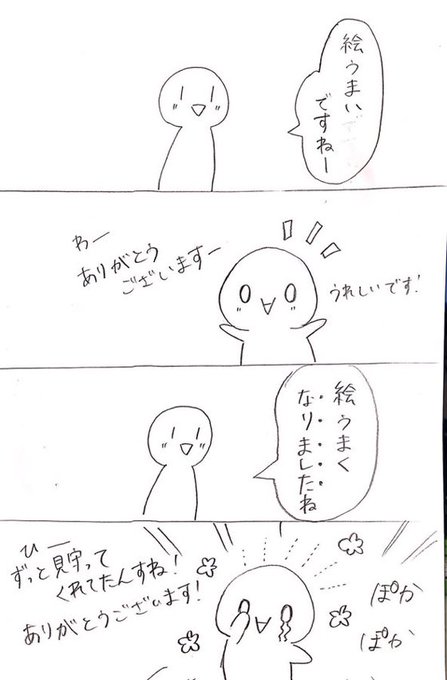 絵うまい
ですねー
わー
ありがとう
ございますー
うれしいです!
絵うまく
なりましたね
ひー
ずっと見守って
くれてたんすね!
ありがとうございます!
ぽか
ぽか